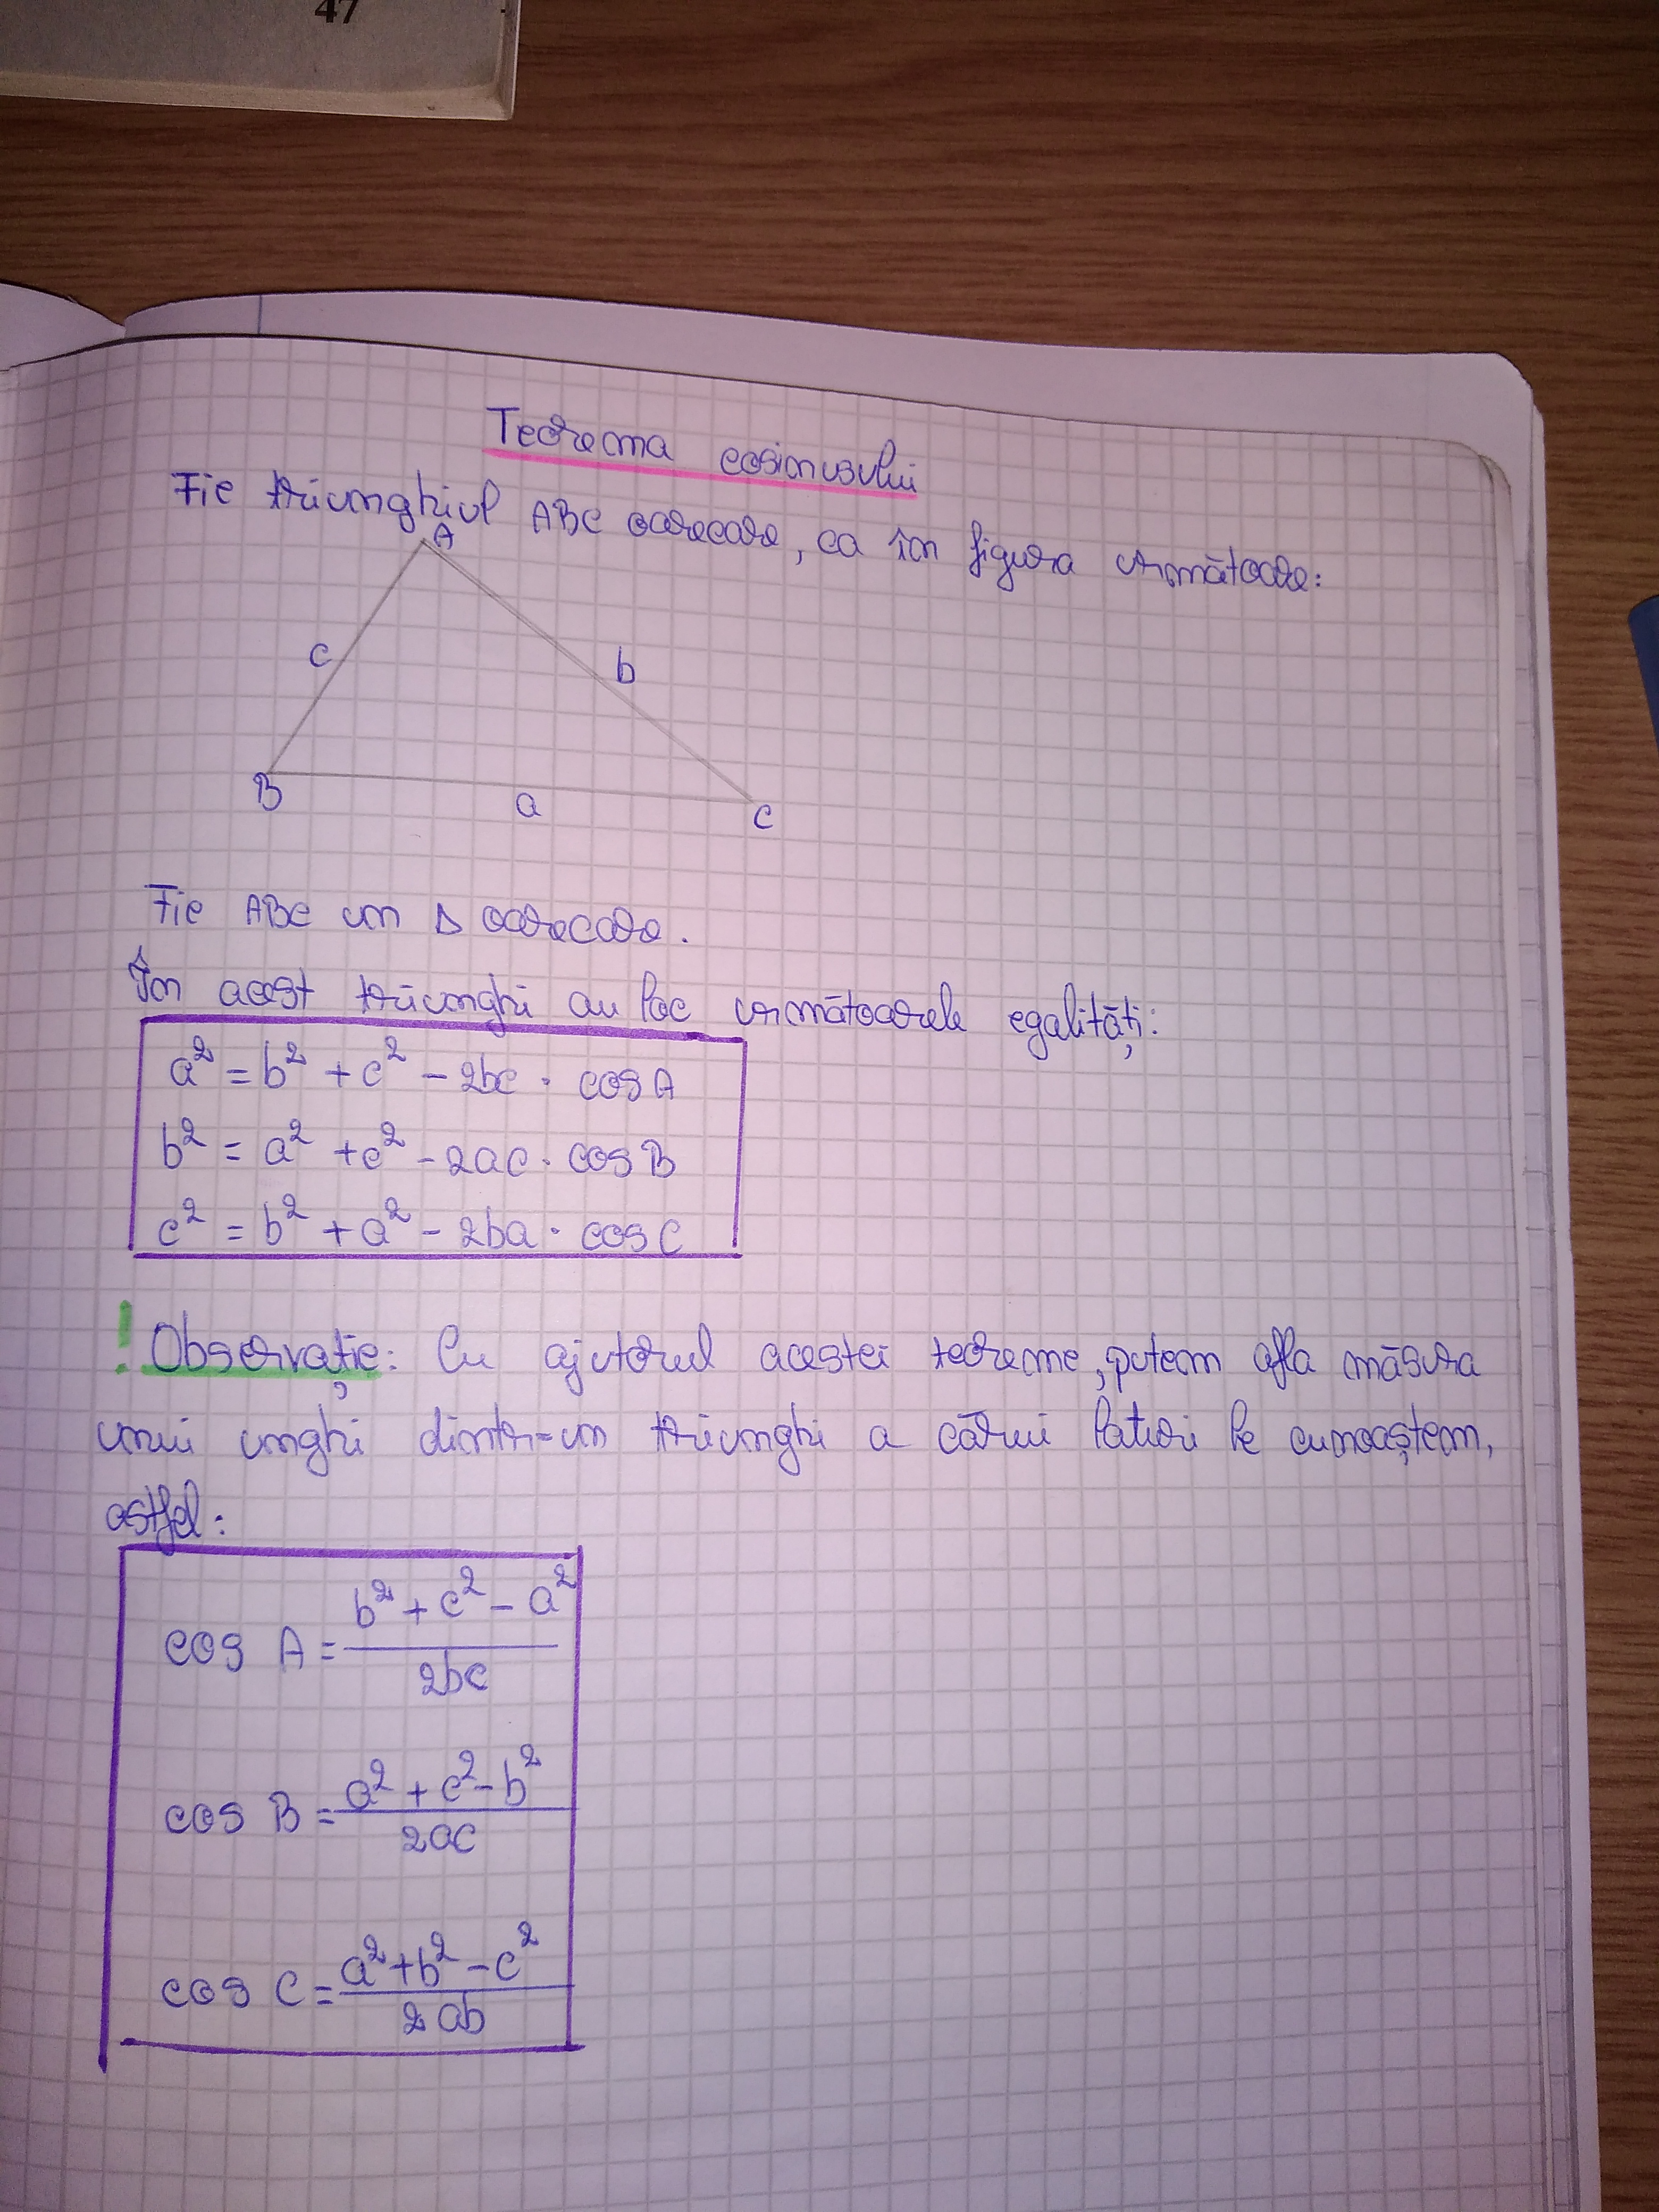 47
Teorema cosinusului
Fie triunghiul ABC oarecare, ca în figura următoare:
A
c
b
B
a
C
Fie ABC un Δ oarecare.
În acest triunghi au loc următoarele egalități:
a² = b² + c² - 2bc · cos A
b² = a² + c² - 2ac · cos B
c² = b² + a² - 2ba · cos C
! Observație: Cu ajutorul acestei teoreme, putem afla măsura
unui unghi dintr-un triunghi a cărui laturi le cunoaștem,
astfel:
cos A = (b² + c² - a²) / 2bc
cos B = (a² + c² - b²) / 2ac
cos C = (a² + b² - c²) / 2ab